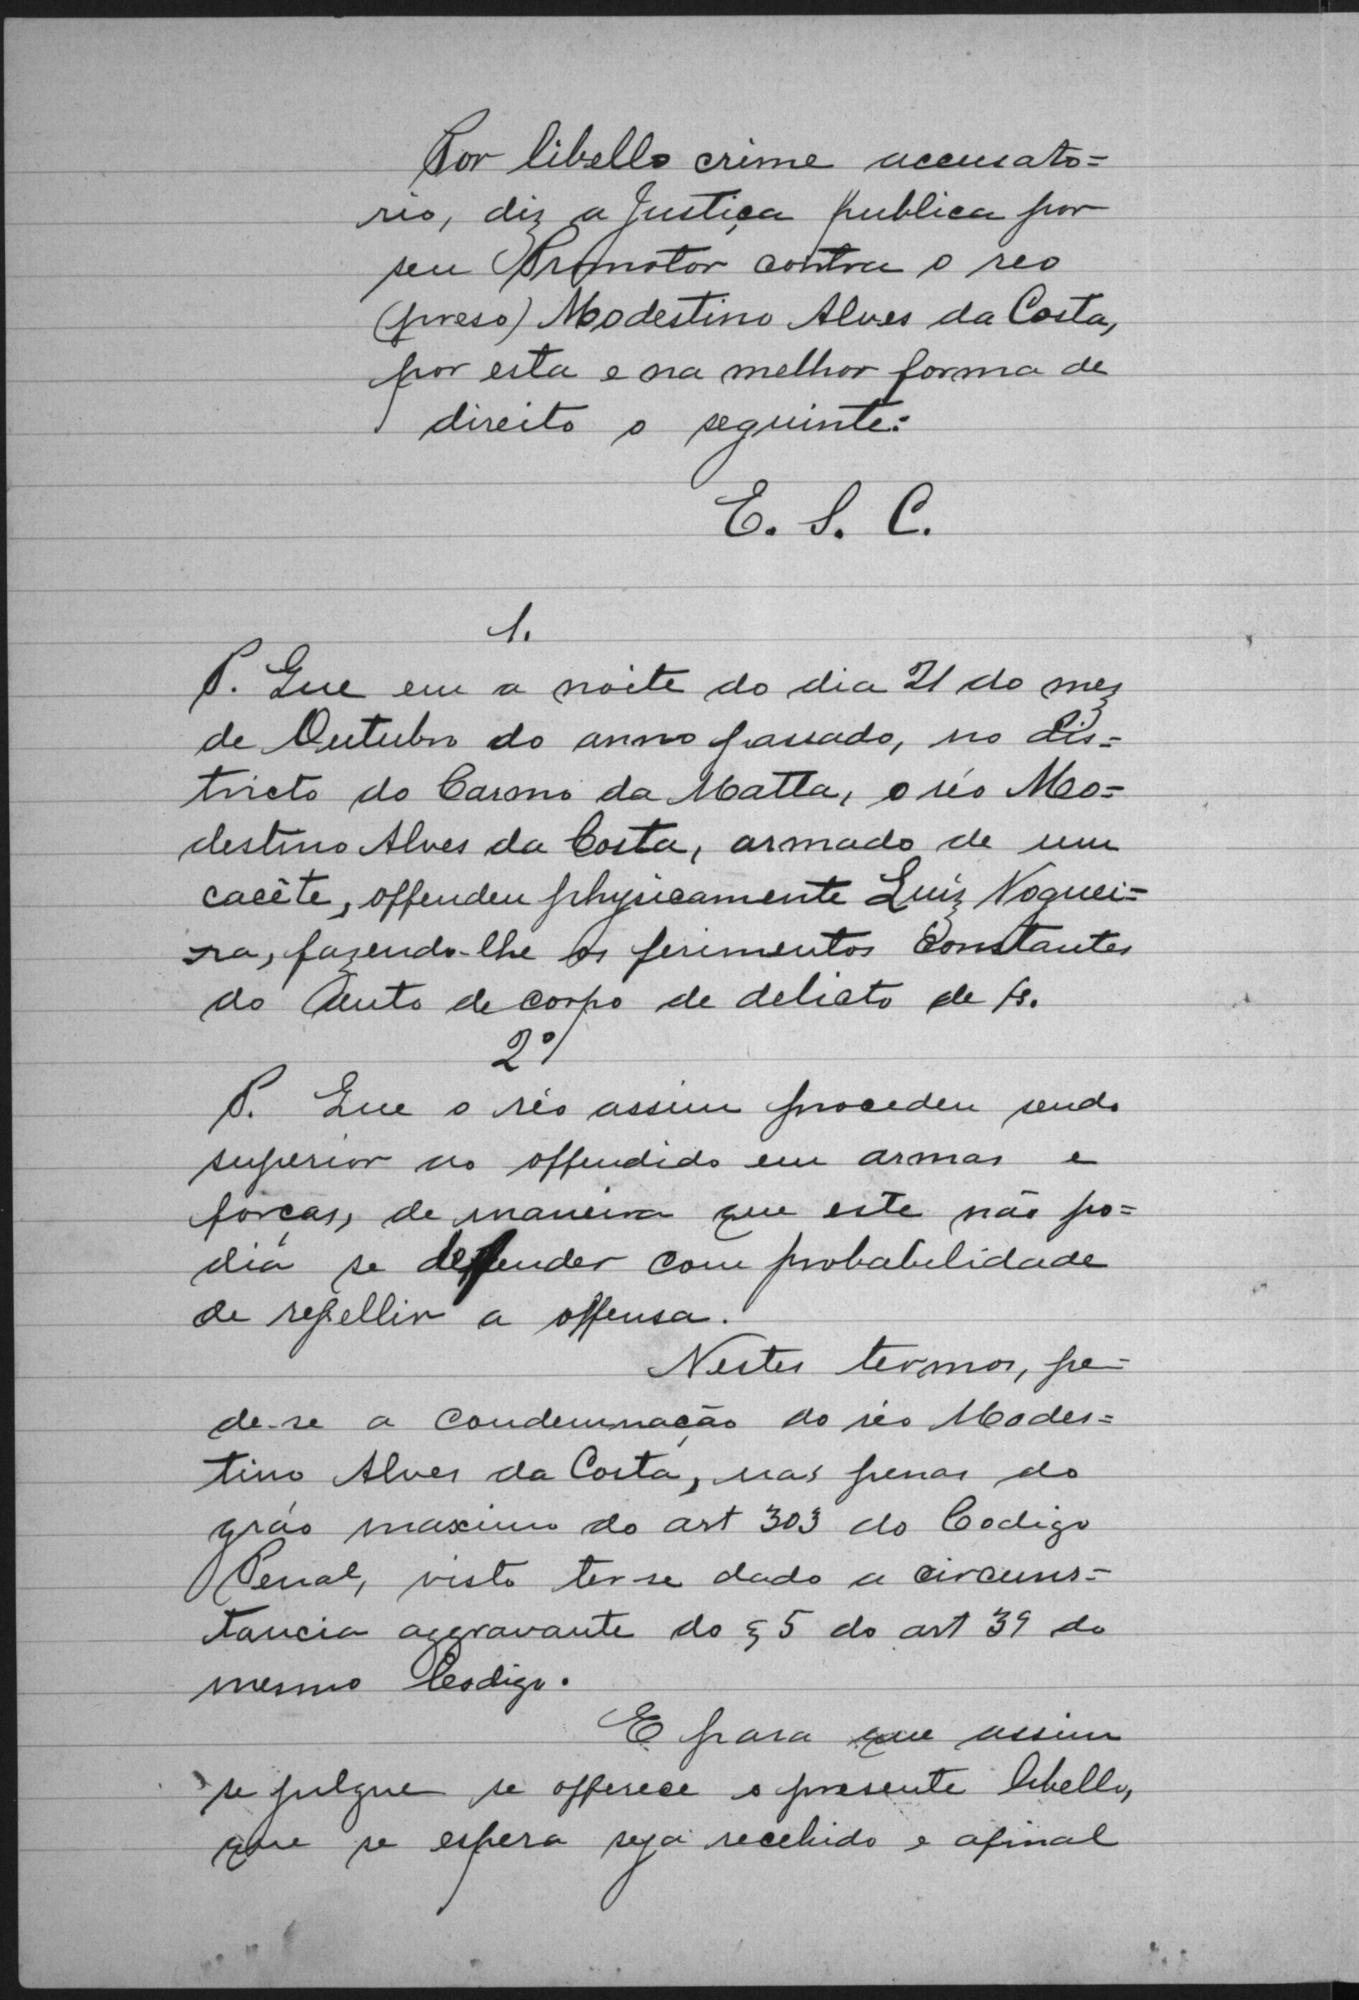 Por libello crime accusato=
rio, diz a Justiça publica por
seu Promotor contra o reo
(preso) Modestino Alves da Costa,
por esta e na melhor forma de
direito o seguinte:
E. S. C.
1.
P. Que em a noite do dia 21 do mez
de Outubro do anno passado, no dis=
tricto do Carmo da Matta, o réo Mo=
destino Alves da Costa, armado de um
cacête, offendeu physicamente Luiz Noguei=
ra, fazendo-lhe os ferimentos constantes
do auto de corpo de delicto de fs.
2º
P. Que o réo assim procedeu sendo
superior ao offendido em armas e
forças, de maneira que este não po=
dia se defender com probabilidade
de repellir a offensa.
Nestes termos, pe=
de-se a condemnação do réo Modes=
tino Alves da Costa, nas penas do
gráo maximo do art 303 do Codigo
Penal, visto ter-se dado a circums=
tancia aggravante do § 5 do art 39 do
mesmo Codigo.
E para que assim
se julgue se offerece o presente libello,
que se espera seja recebido e afinal